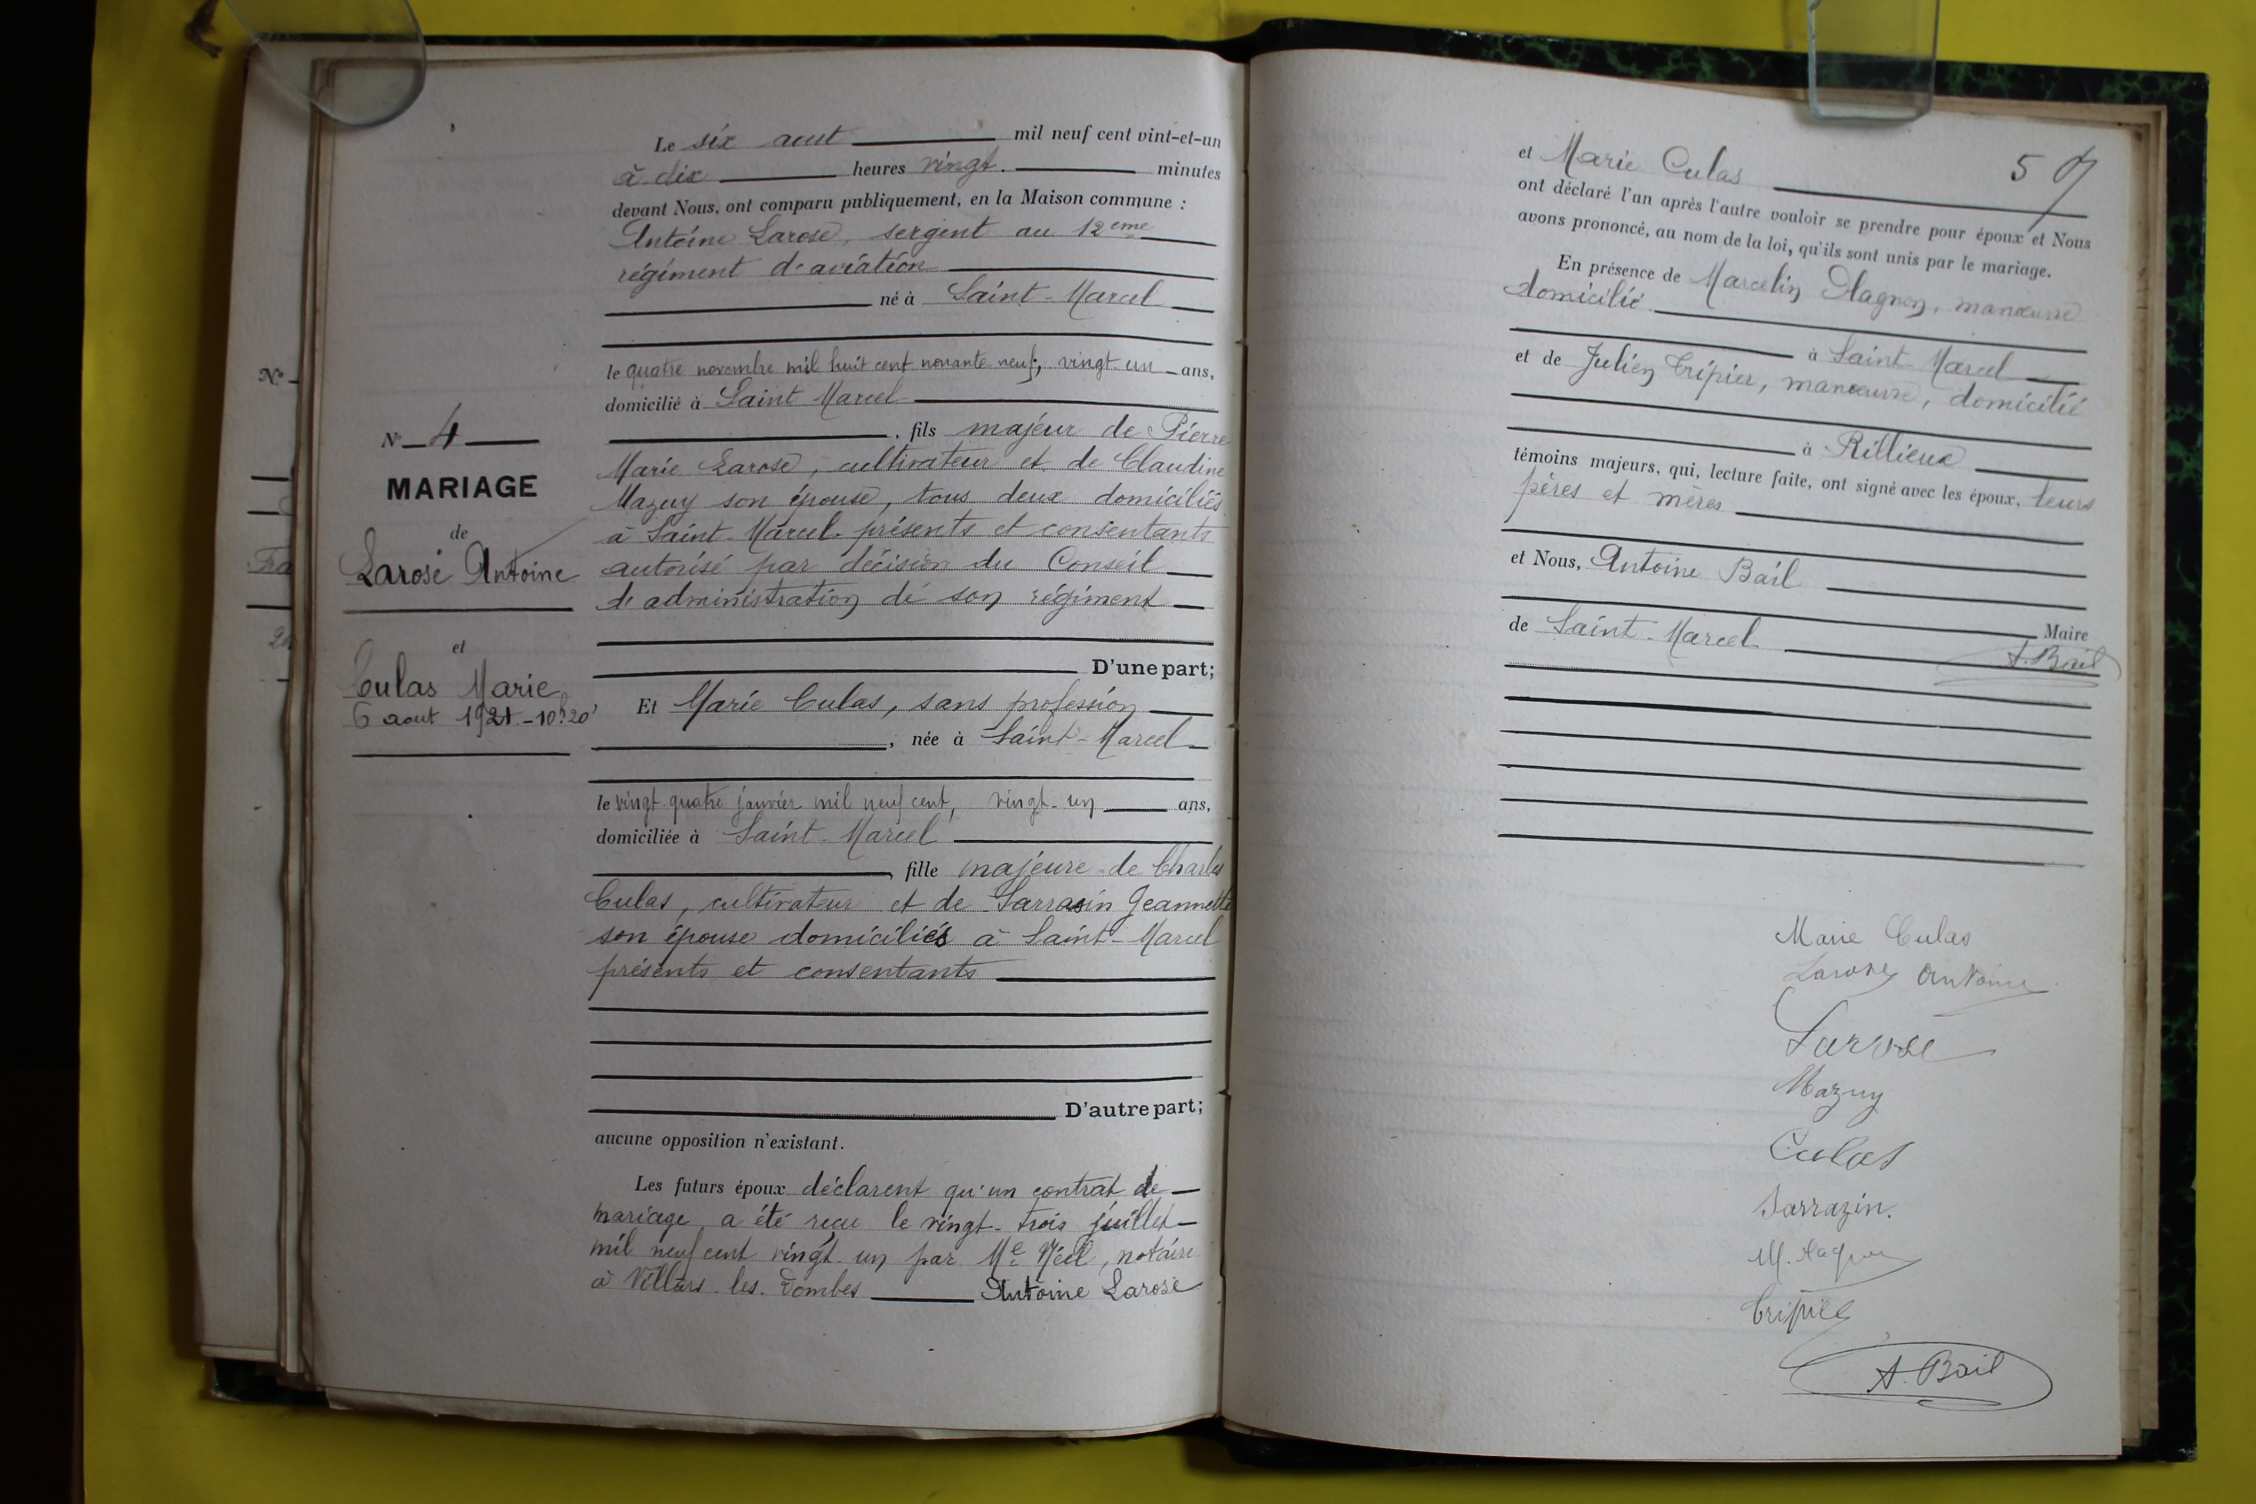 Le six aout mil neuf cent vint-et-un
à dix heures vingt. minutes
devant Nous, ont comparu publiquement, en la Maison commune :
Antoine Larose, sergent au 12eme
régiment d'aviation
né à Saint-Marcel
le quatre novembre mil huit cent nonante neuf, vingt-un ans,
domicilié à Saint Marcel
, fils majeur de Pierre
Marie Larose, cultivateur et de Claudine
Mazuy son épouse, tous deux domiciliés
à Saint-Marcel présents et consentants
autorisé par décision du Conseil
d'administration de son régiment
D'une part;
Et Marie Culas, sans profession
, née à Saint-Marcel
le vingt-quatre janvier mil neuf cent, vingt-un ans,
domiciliée à Saint-Marcel
, fille majeure de Charles
Culas, cultivateur et de Sarrasin Jeannette
son épouse domiciliés à Saint-Marcel
présents et consentants
D'autre part;
aucune opposition n'existant.
Les futurs époux déclarent qu'un contrat de
mariage a été reçu le vingt-trois juillet
mil neuf cent vingt un par Me notaire
à Villars-les-Dombes Antoine Larose
N° 4
MARIAGE
de
Larose Antoine
et
Culas Marie
6 aout 1921 - 10h20'
N°
Fra
et Marie Culas 5
ont déclaré l'un après l'autre vouloir se prendre pour époux et Nous
avons prononcé, au nom de la loi, qu'ils sont unis par le mariage.
En présence de Marcelin manœuvre
domicilié
à Saint-Marcel
et de Julien Tripier, manœuvre, domicilié
à Rillieux
témoins majeurs, qui, lecture faite, ont signé avec les époux, leurs
pères et mères
et Nous, Antoine Bail
Maire
de Saint-Marcel A. Bail
Marie Culas
Larose Antoine
Larose
Mazuy
Culas
Sarrazin.
M.
Tripier
A. Bail